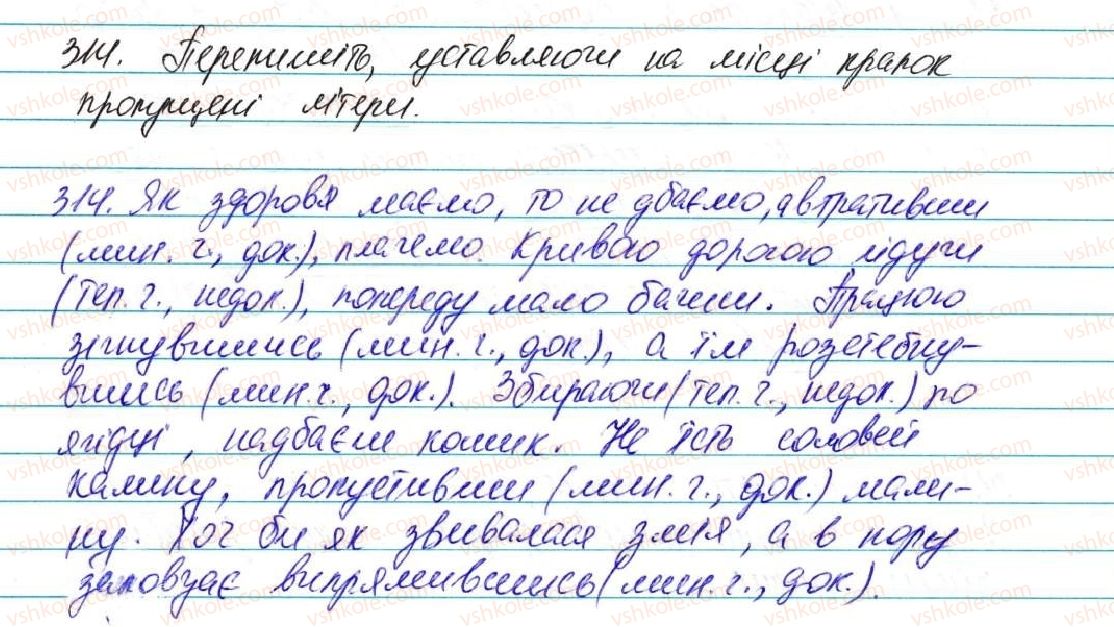 314. Перепишіть, уставляючи на місці крапок
пропущені літери.
314. Як здоровя маємо, то не дбаємо, а втративши
(мин. ч., док.), плачемо. Кривою дорогою йдучи
(теп. ч., недок.), попереду мало бачиш. Працюю
зігнувшись (мин. ч., док.), а їм розстебну-
вшись (мин. ч., док.). Збираючи (теп. ч., недок.) по
ягідці, надбаєш кошик. Не їсть соловей
калину, пропустивши (мин. ч., док.) мали-
ну. Хоч би як звивалася змія, а в нору
заповзає випрямившись (мин. ч., док.).